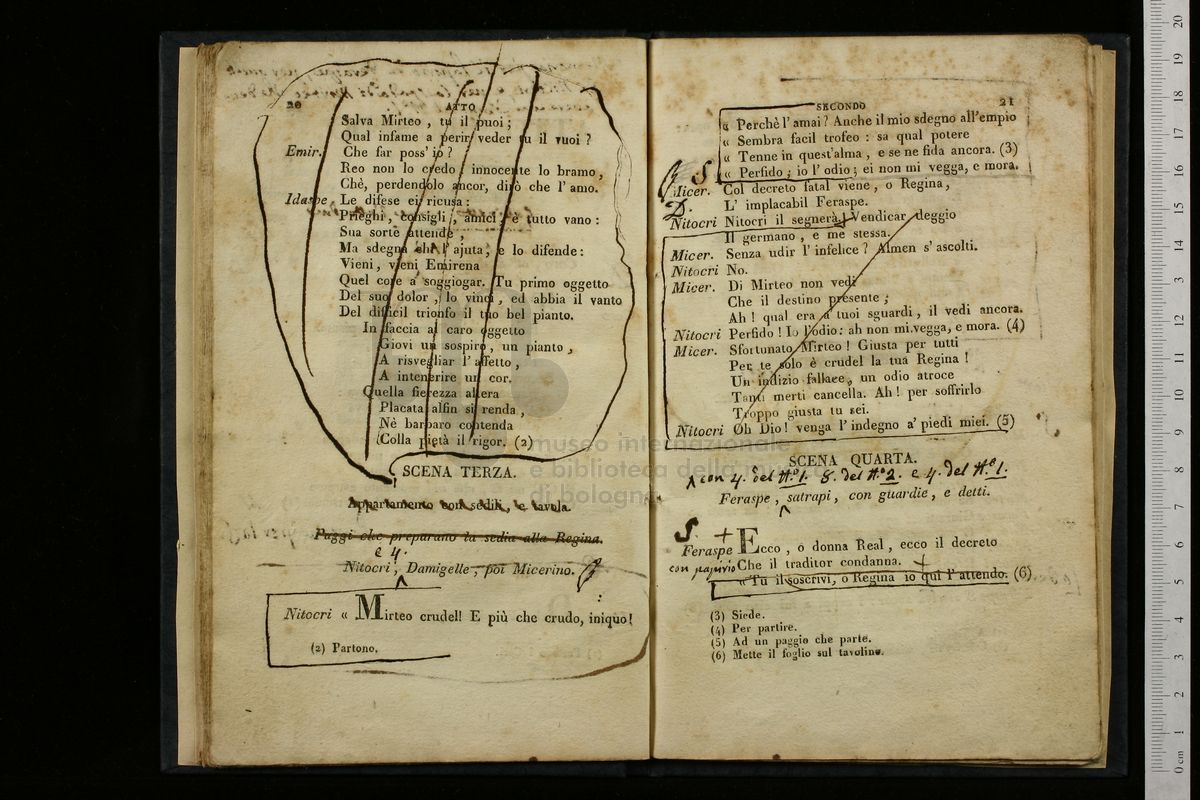 20
ATTO
Salva Mirteo, tu il puoi;
Qual infame a perir veder tu il vuoi?
Emir. Che far poss' io?
Reo non lo credo: innocente lo bramo,
Chè, perdendolo ancor, dirò che l' amo.
Idaspe Le difese ei ricusa:
Prieghi, consigli, amici, è tutto vano:
Sua sorte attende,
Ma sdegna chi l' ajuta, e lo difende:
Vieni, vieni Emirena
Quel core a soggiogar. Tu primo oggetto
Del suo dolor, lo vinci, ed abbia il vanto
Del difficil trionfo il tuo bel pianto.
In faccia al caro oggetto
Giovi un sospiro, un pianto,
A risvegliar l' affetto,
A intenerire un cor.
Quella fierezza altera
Placata alfin si renda,
Nè barbaro contenda
Colla pietà il rigor. (2)
SCENA TERZA.
Appartamento con sedili, e tavola.
Paggi che preparano la sedia alla Regina.
e 4.
Nitocri, Damigelle, poi Micerino.
Nitocri « Mirteo crudel! E più che crudo, iniquo!
(2) Partono.
SECONDO
21
« Perchè l' amai? Anche il mio sdegno all'empio
« Sembra facil trofeo: sa qual potere
« Tenne in quest'alma, e se ne fida ancora. (3)
« Perfido; io l' odio; ei non mi vegga, e mora.
S.
Micer. Col decreto fatal viene, o Regina,
L' implacabil Feraspe.
D.
Nitocri Nitocri il segnerà. Vendicar deggio
Il germano, e me stessa.
Micer. Senza udir l' infelice? Almen s' ascolti.
Nitocri No.
Micer. Di Mirteo non vedi
Che il destino presente;
Ah! qual era a' tuoi sguardi, il vedi ancora.
Nitocri Perfido! Io l'odio: ah non mi vegga, e mora. (4)
Micer. Sfortunato Mirteo! Giusta per tutti
Per te solo è crudel la tua Regina!
Un indizio fallace, un odio atroce
Tanti merti cancella. Ah! per soffrirlo
Troppo giusta tu sei.
Nitocri Oh Dio! venga l' indegno a' piedi miei. (5)
SCENA QUARTA.
con 4. del N.º 1. 8. del N.º 2. e 4. del N.º 1.
Feraspe, satrapi, con guardie, e detti.
S. +
Feraspe Ecco, o donna Real, ecco il decreto
con papirio Che il traditor condanna. +
«Tu il soscrivi, o Regina io qui l' attendo. (6)
(3) Siede.
(4) Per partire.
(5) Ad un paggio che parte.
(6) Mette il foglio sul tavolino.
museo internazionale
e biblioteca della musica
di bologna
0 cm 1 2 3 4 5 6 7 8 9 10 11 12 13 14 15 16 17 18 19 20